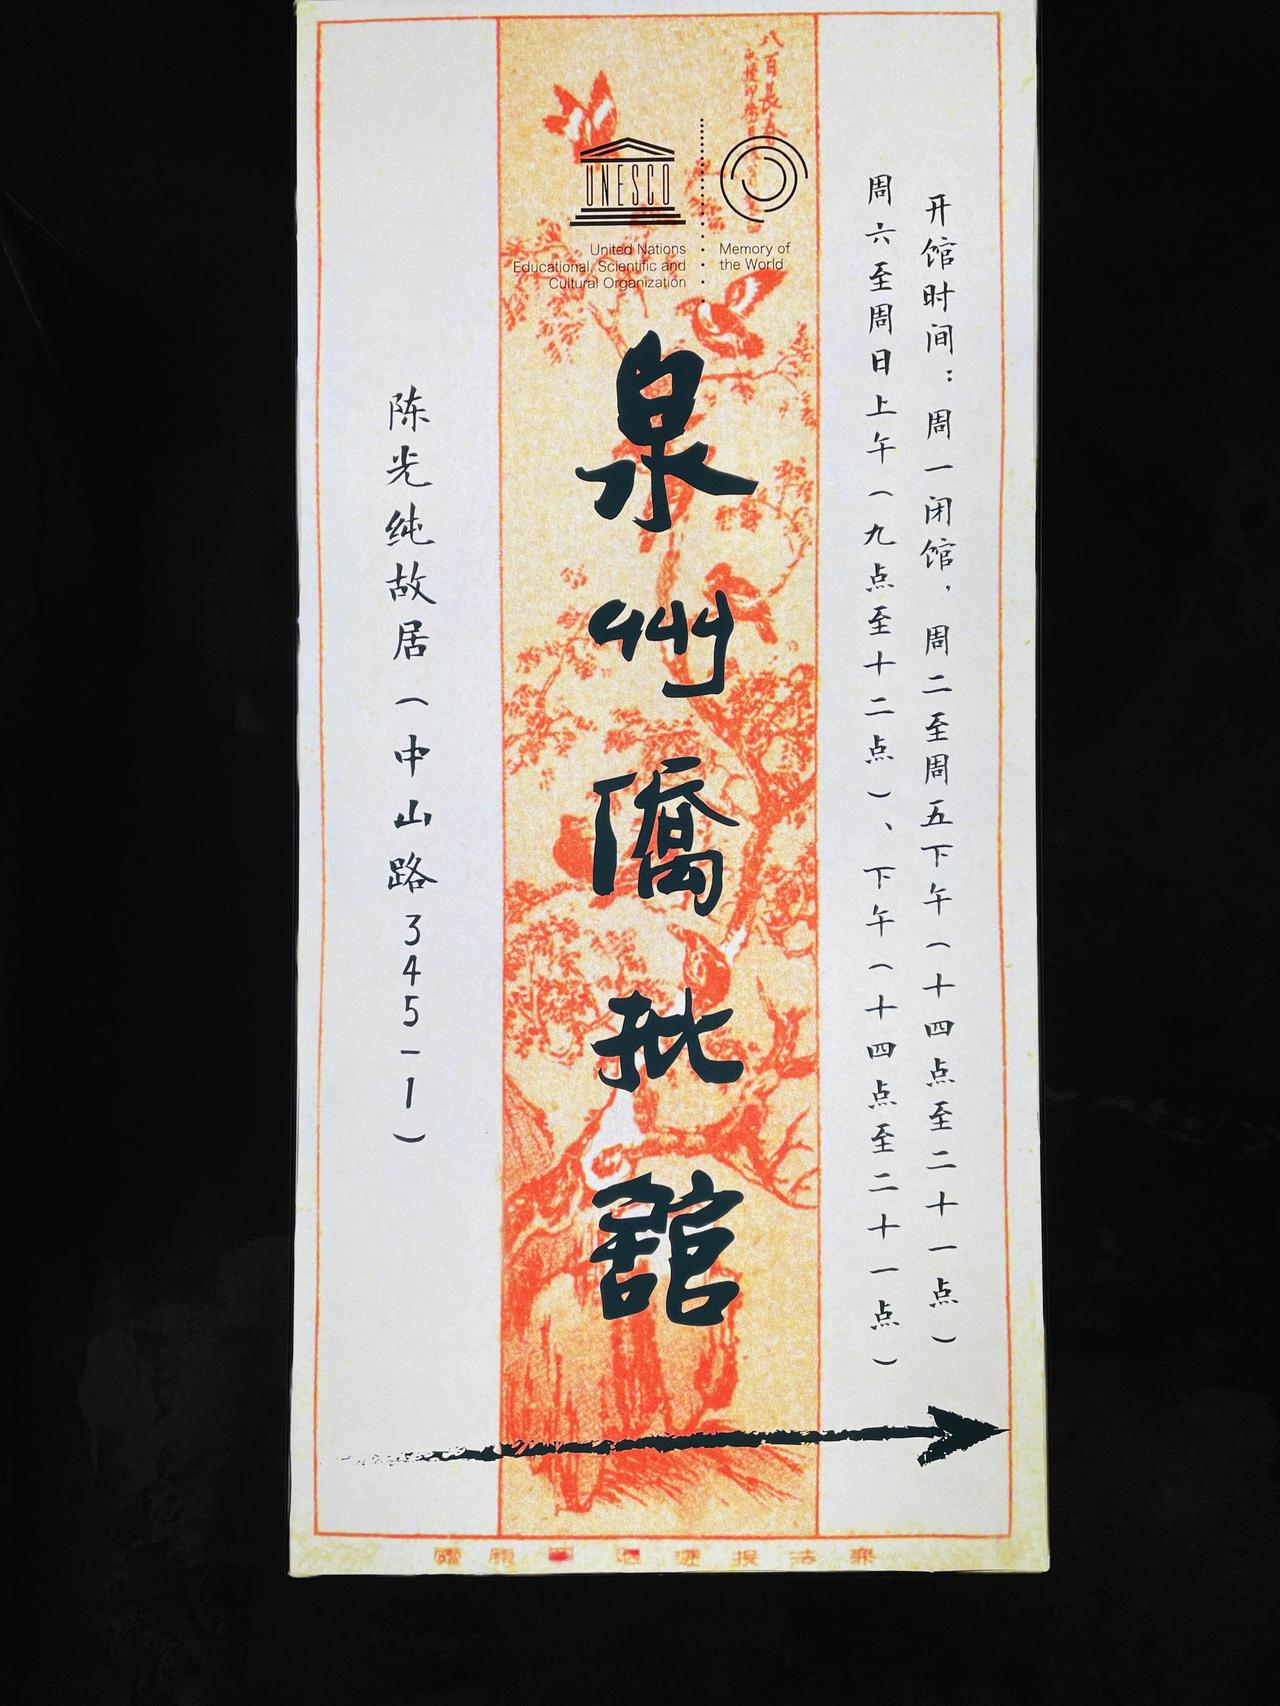 UNESCO
United Nations
Educational, Scientific and
Cultural Organization
Memory of
the World
开馆时间：周一闭馆，周二至周五下午（十四点至二十一点）
周六至周日上午（九点至十二点）、下午（十四点至二十一点）
泉州僑批舘
陈光纯故居（中山路345-1）
八百長春